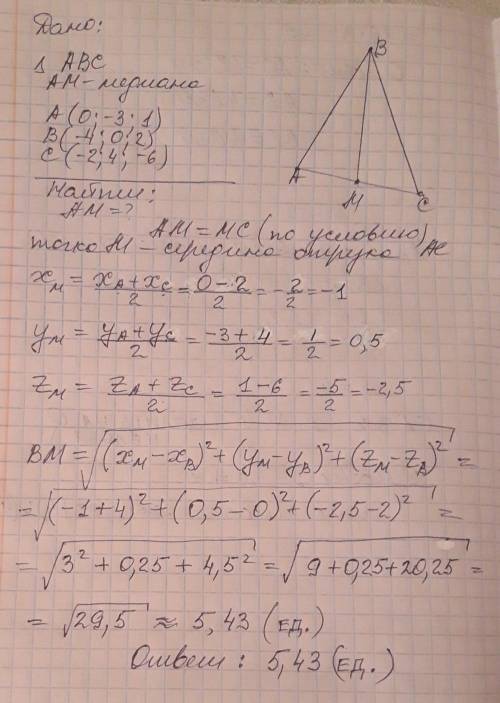 Дано:
△ ABC
AM - медиана
A (0; -3; 1)
B (-4; 0; 2)
C (-2; 4; -6)
Найти:
AM = ?
B
A
M
C
AM = MC (по условию)
точка M - середина отрезка AC
x_M = (x_A + x_C)/2 = (0 - 2)/2 = -2/2 = -1
y_M = (y_A + y_C)/2 = (-3 + 4)/2 = 1/2 = 0,5
z_M = (z_A + z_C)/2 = (1 - 6)/2 = -5/2 = -2,5
BM = √((x_M - x_B)² + (y_M - y_B)² + (z_M - z_B)²) =
= √((-1+4)² + (0,5 - 0)² + (-2,5 - 2)²) =
= √(3² + 0,25 + 4,5²) = √(9 + 0,25 + 20,25) =
= √29,5 ≈ 5,43 (ед.)
Ответ: 5,43 (ед.)